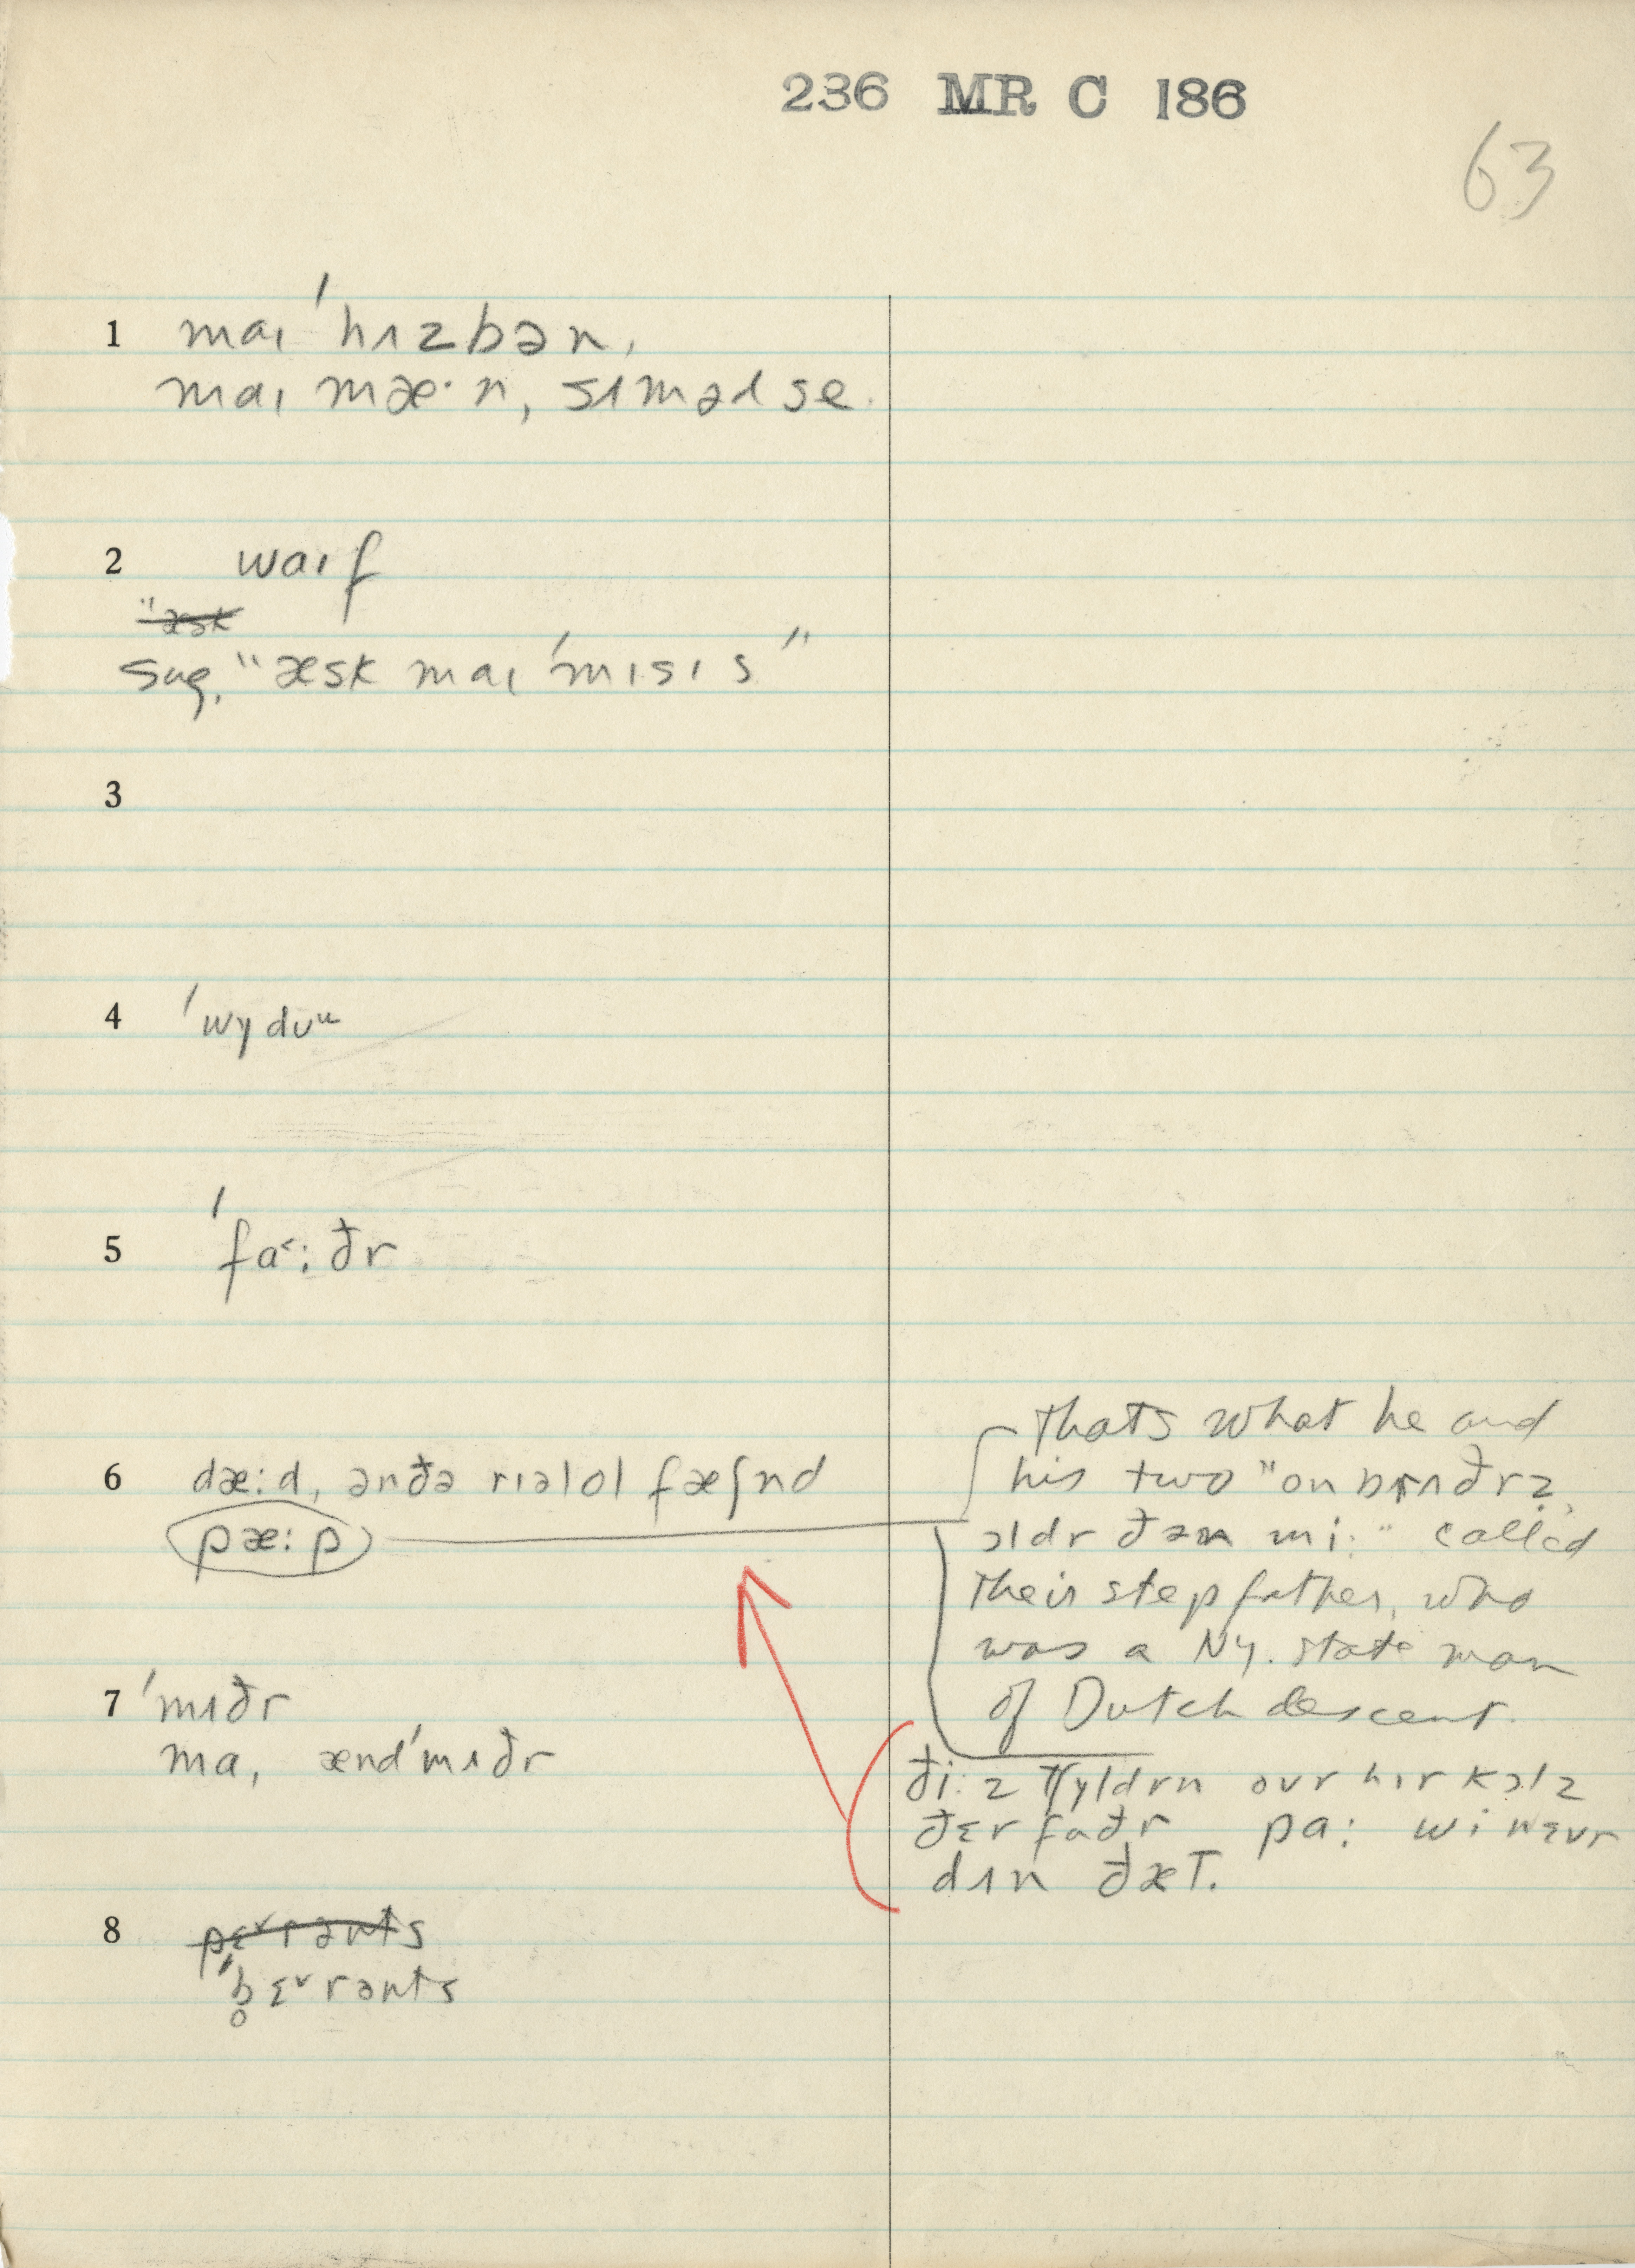 236 MR C 186
63
1 maɪ 'hʌzbən,
maɪ mæ·n, sʌməd se.
2 waɪf
"æsk
sug. "æsk maɪ 'mɪsɪs"
3
4 'wydʊᵘ
5 'fa˂:ðr
6 dæ:d, ənðə rɪəlol fæʃnd
pæ:p
Thats what he and
his two "on brʌðrz,
ɔldr ðən mi:" called
their stepfather, who
was a NY. state man
of Dutch descent.
7 'mʌðr
ma, ænd'mʌðr
ði:z tʃyldrn ovr hɪr kɔlz
ðɛr faðr pa: wi nɛvr
dʌn ðæT.
8 pɛ˅rənts
'b̥ɛ˅rənts